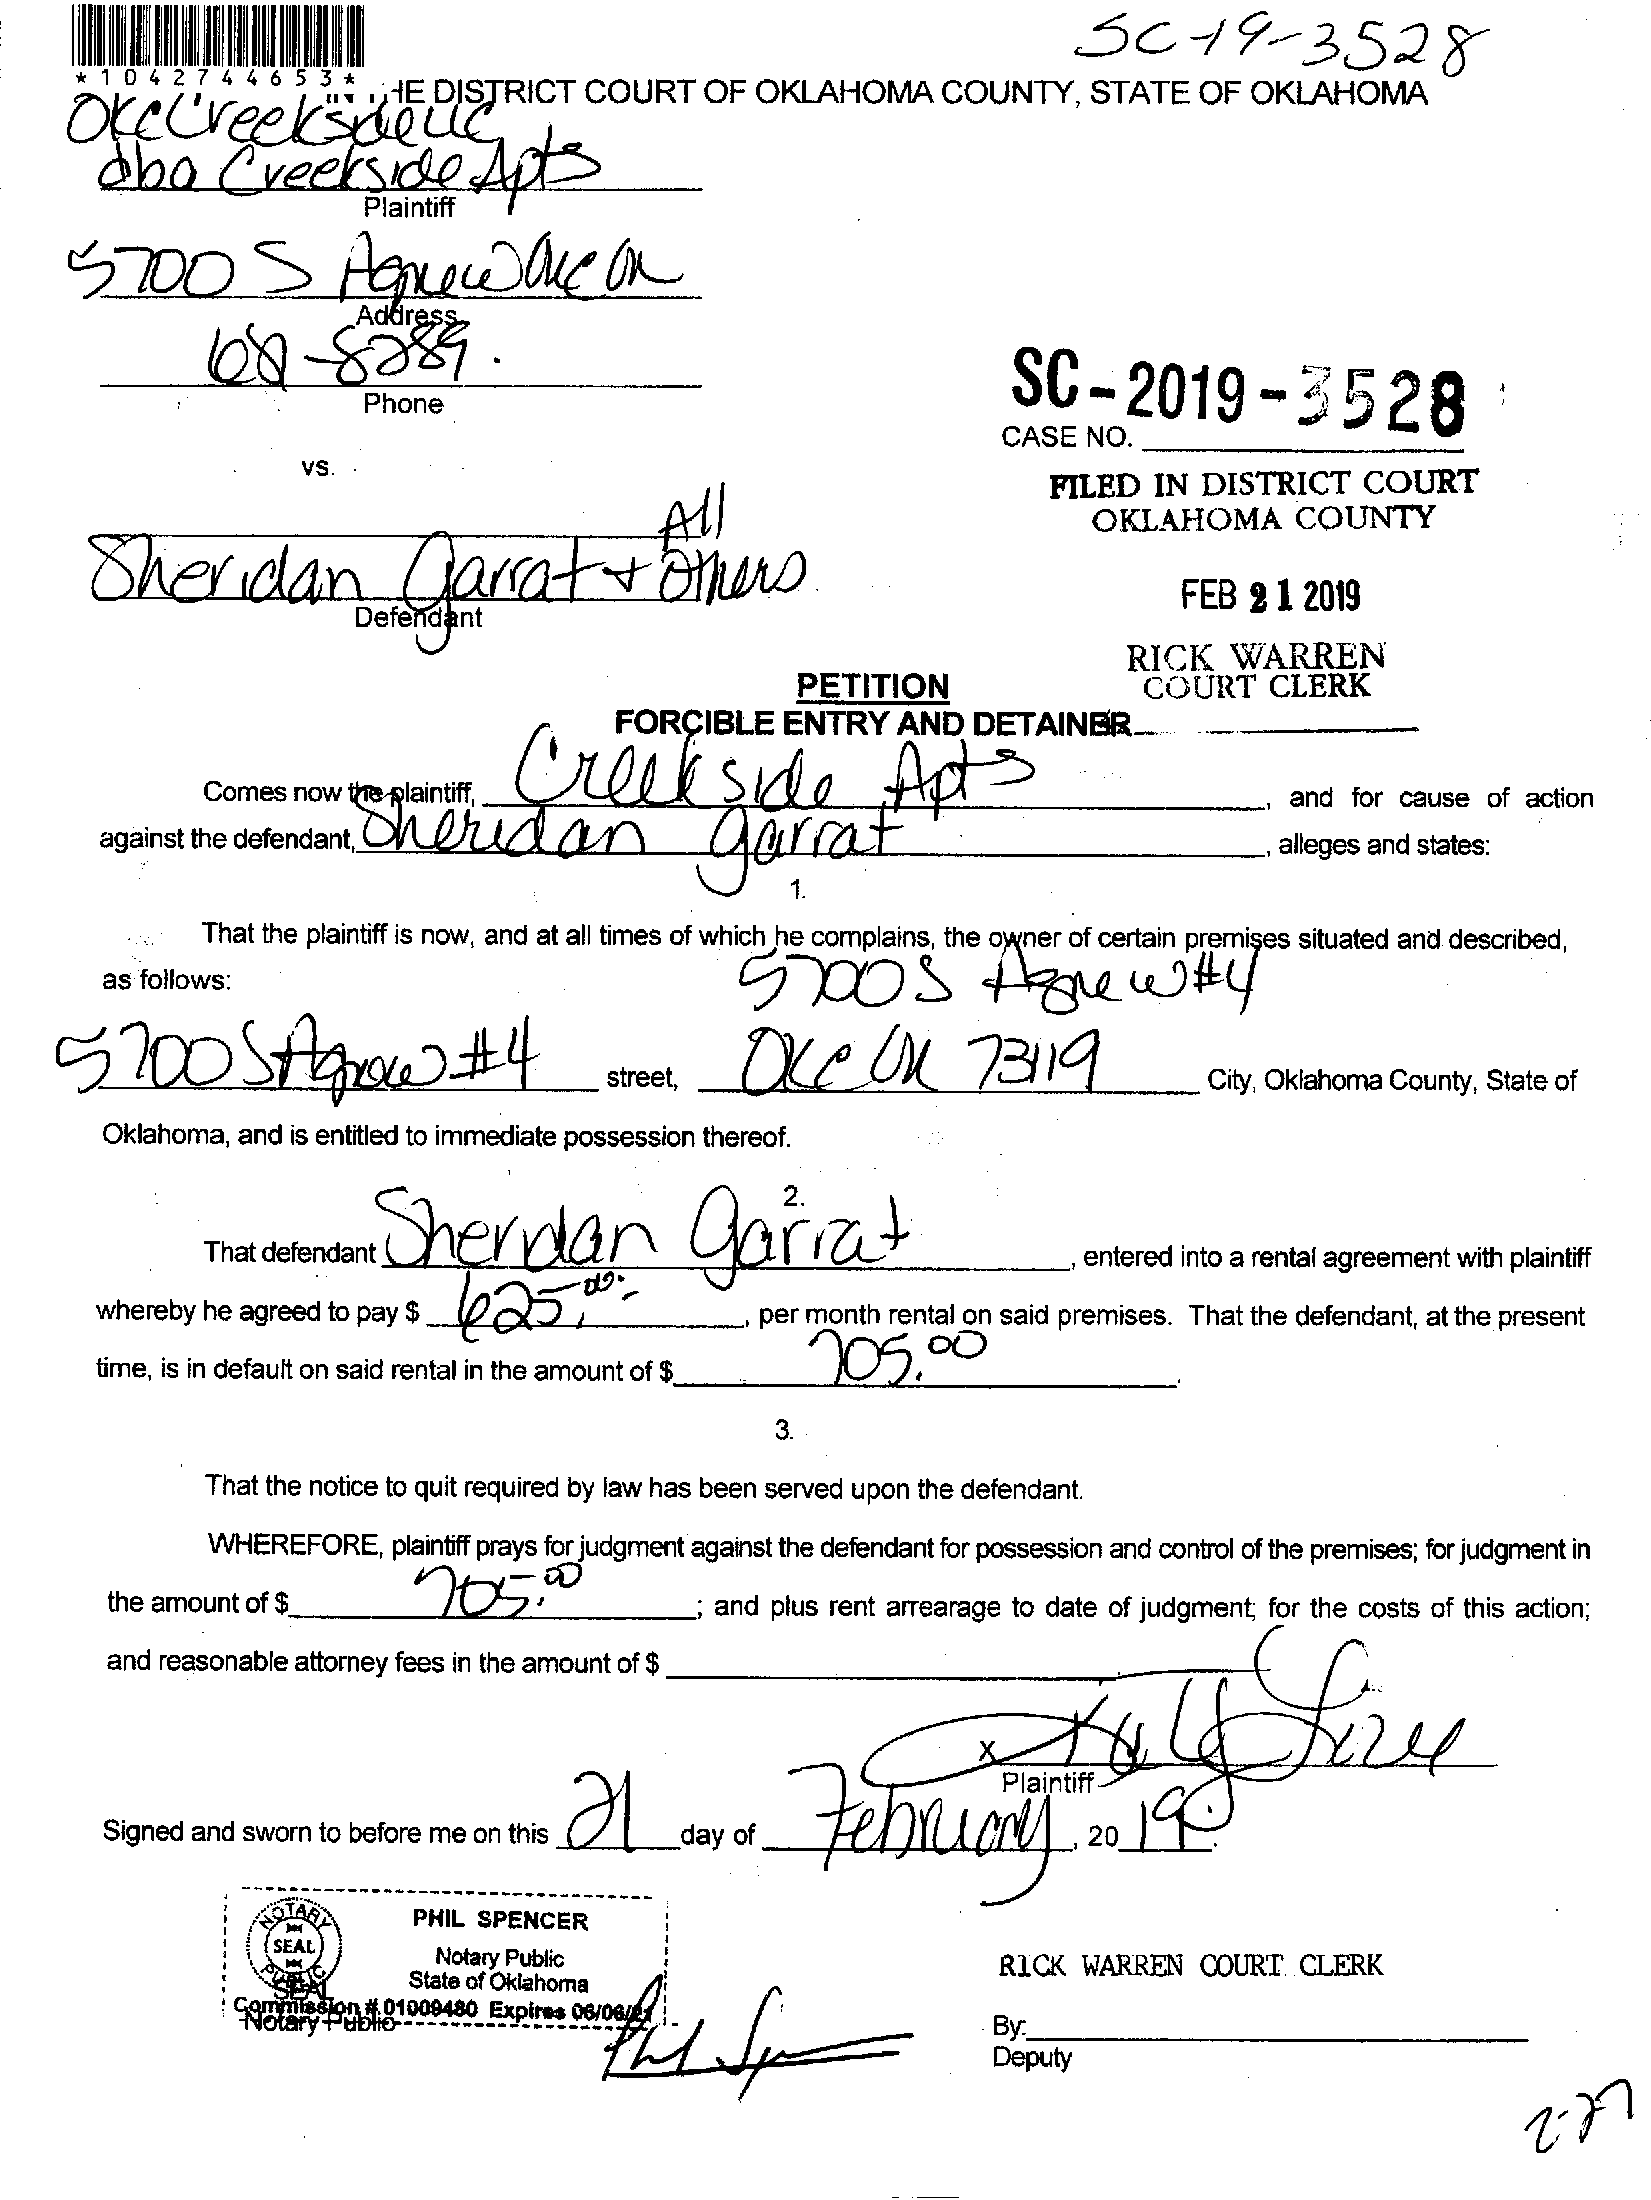 SC-19-3528
*1042744653*
HE DISTRICT COURT OF OKLAHOMA COUNTY, STATE OF OKLAHOMA
OKC Creekside LLC
dba Creekside Apts
Plaintiff
5700 S Agnew OKC OK
Address
-8289
Phone
SC-2019-3528
CASE NO.
vs.
FILED IN DISTRICT COURT
OKLAHOMA COUNTY
All
Sheridan Garrat + Others
Defendant
FEB 21 2019
RICK WARREN
COURT CLERK
PETITION
FORCIBLE ENTRY AND DETAINER
Comes now the plaintiff, Creekside Apts, and for cause of action
against the defendant, Sheridan Garrat, alleges and states:
1.
That the plaintiff is now, and at all times of which he complains, the owner of certain premises situated and described,
as follows: 5700 S Agnew #4
5700 S Agnew #4 street, OKC OK 73119 City, Oklahoma County, State of
Oklahoma, and is entitled to immediate possession thereof.
2.
That defendant Sheridan Garrat, entered into a rental agreement with plaintiff
whereby he agreed to pay $ 625.00, per month rental on said premises. That the defendant, at the present
time, is in default on said rental in the amount of $ 705.00.
3.
That the notice to quit required by law has been served upon the defendant.
WHEREFORE, plaintiff prays for judgment against the defendant for possession and control of the premises; for judgment in
the amount of $ 705.00; and plus rent arrearage to date of judgment; for the costs of this action;
and reasonable attorney fees in the amount of $
X
Plaintiff
Signed and sworn to before me on this 21 day of February, 2019.
NOTARY PUBLIC SEAL
PHIL SPENCER
Notary Public
State of Oklahoma
Commission # 01009480 Expires 06/06/21
SEAL
Notary Public
Phil Spencer
RICK WARREN COURT CLERK
By:
Deputy
2-27